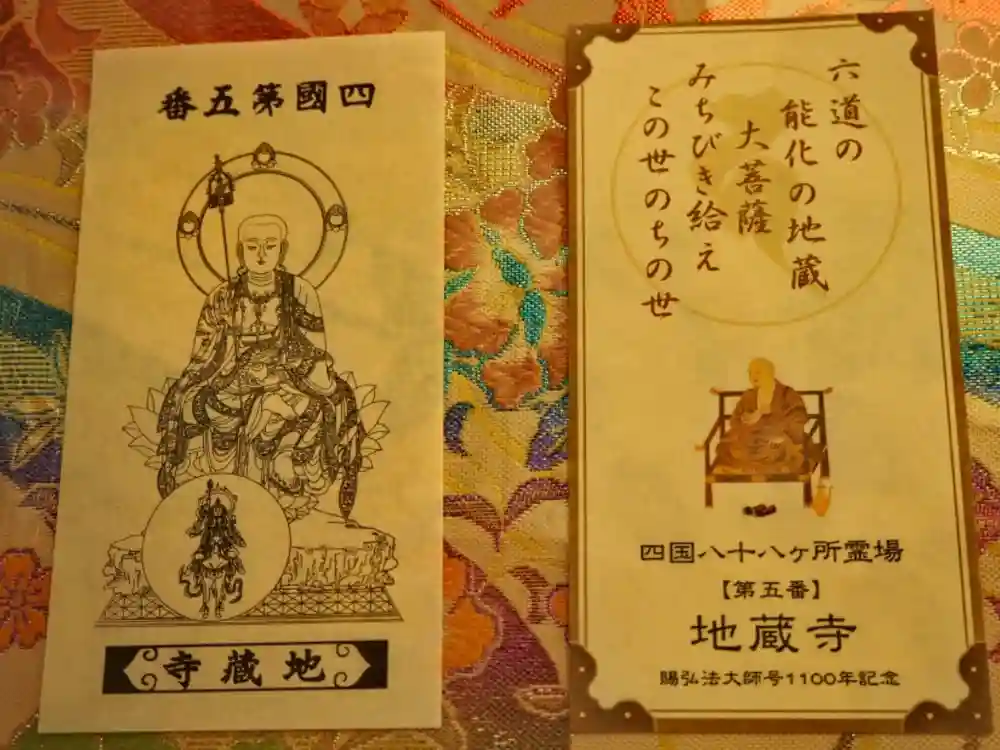 四國第五番
地藏寺
六道の
能化の地蔵
大菩薩
みちびき給え
この世のちの世
四国八十八ヶ所霊場
【第五番】
地蔵寺
賜弘法大師号1100年記念